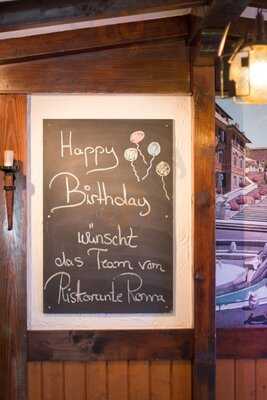 Happy
Birthday
wünscht
das Team vom
Ristorante Roma